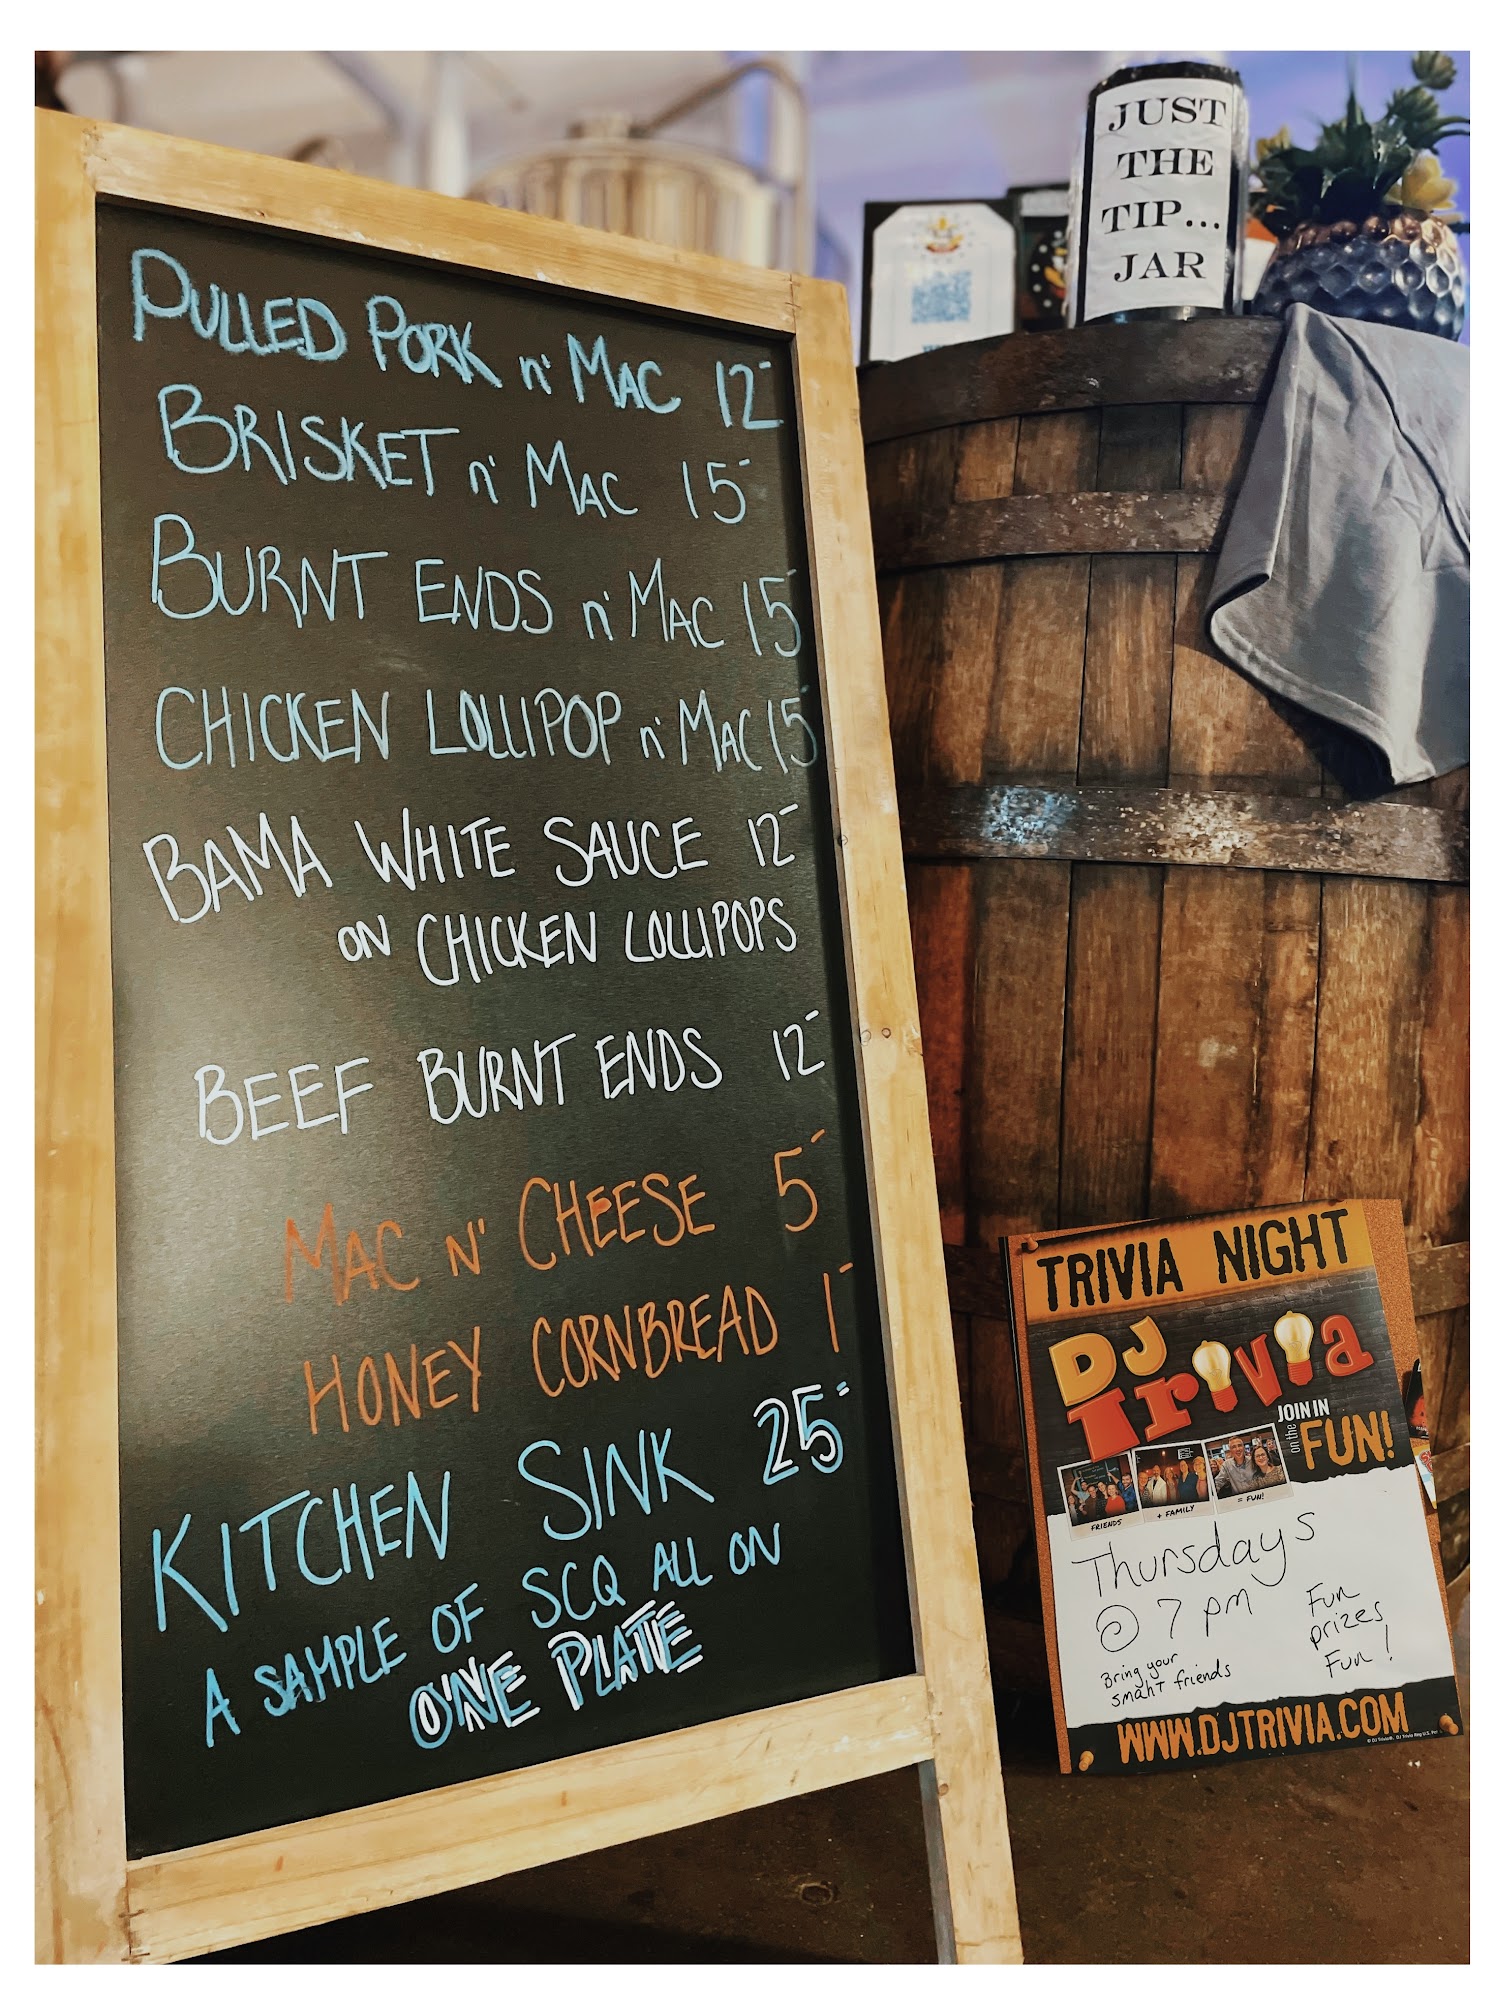 PULLED PORK n' MAC 12-
BRISKET n' MAC 15-
BURNT ENDS n' MAC 15-
CHICKEN LOLLIPOP n' MAC 15-
BAMA WHITE SAUCE 12-
ON CHICKEN LOLLIPOPS
BEEF BURNT ENDS 12-
MAC N' CHEESE 5-
HONEY CORNBREAD 1-
KITCHEN SINK 25=
A SAMPLE OF SCQ ALL ON
ONE PLATE
JUST
THE
TIP...
JAR
TRIVIA NIGHT
DJ
TRIVIA
JOIN IN
on the FUN!
FRIENDS
+ FAMILY
= FUN!
Thursdays
@ 7 pm
Bring your
smahT friends
Fun
prizes
Fun!
WWW.DJTRIVIA.COM